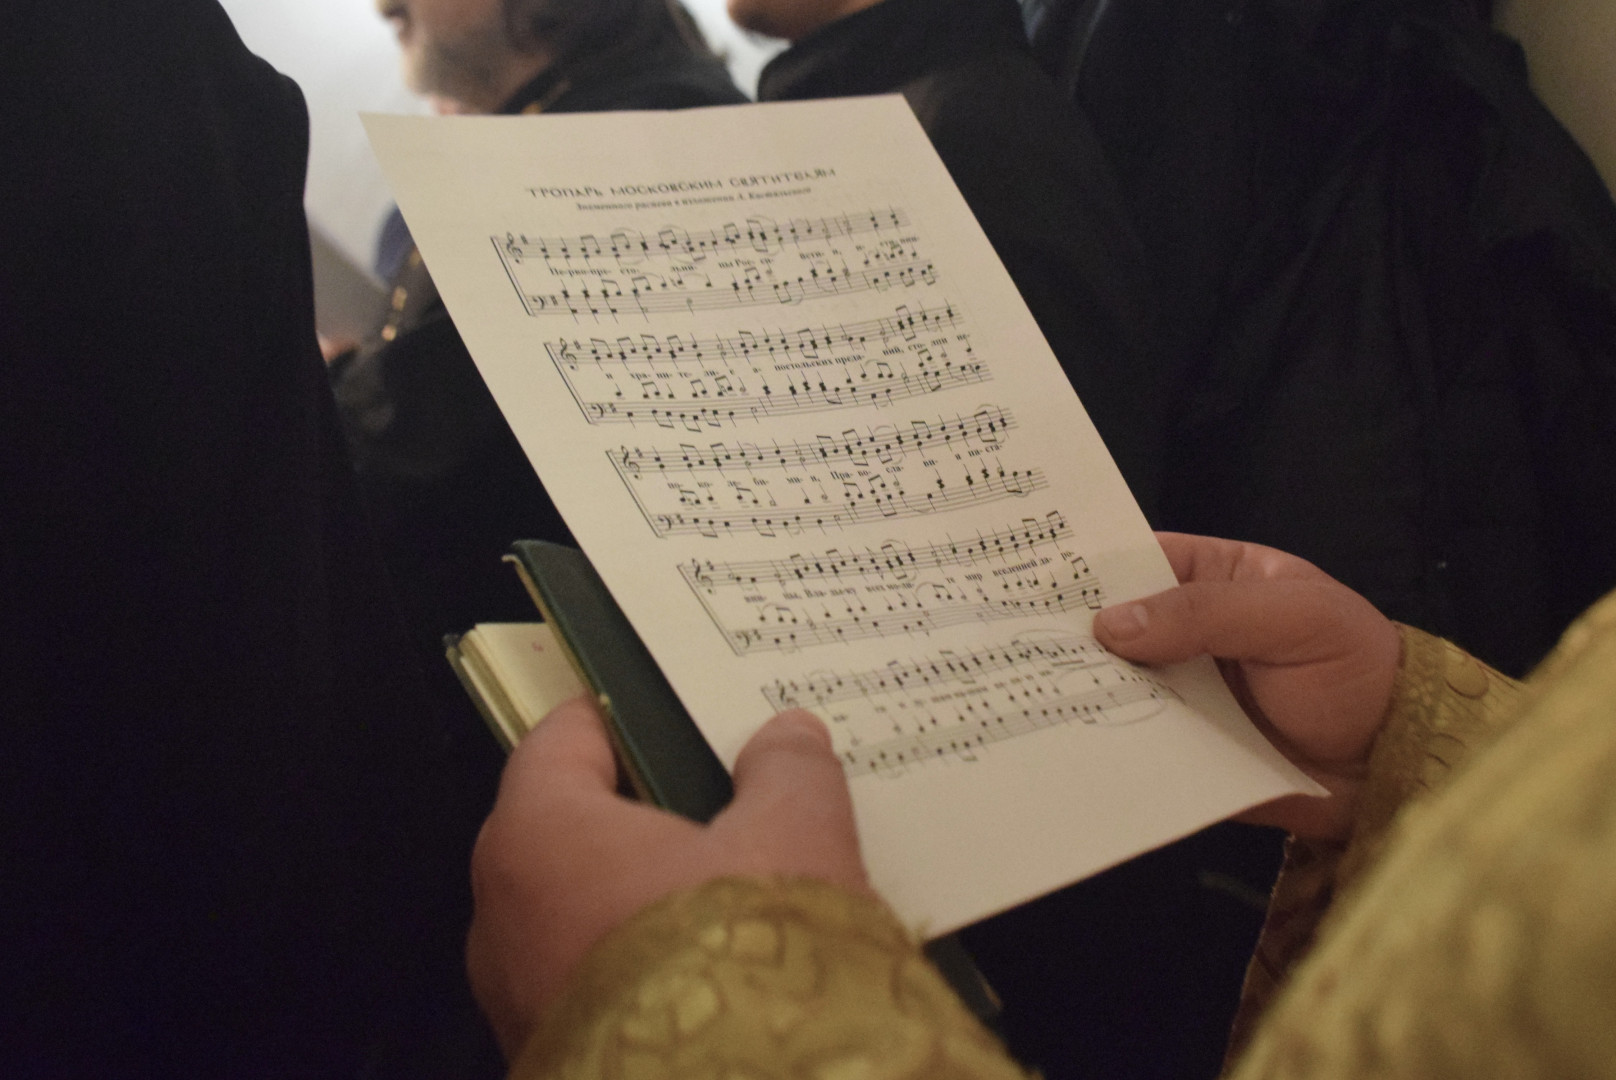 ТРОПАРЬ МОСКОВСКИМ СВЯТИТЕЛЯМ
Знаменного распева в изложении А. Кастальского
Перво-пре- сто- льни- цы Рос- си- йсти- и, и- сти-нни-
и хра- ни- те- ли- е а- постольских преда- ний, сто- лпи не-
по- ко- ле- би- ми- и, Пра- во- сла- ви- я на-ста-
вни- цы, Вла- ды-ку всех мо-ли- те мир вселенней да- ро-
ва-